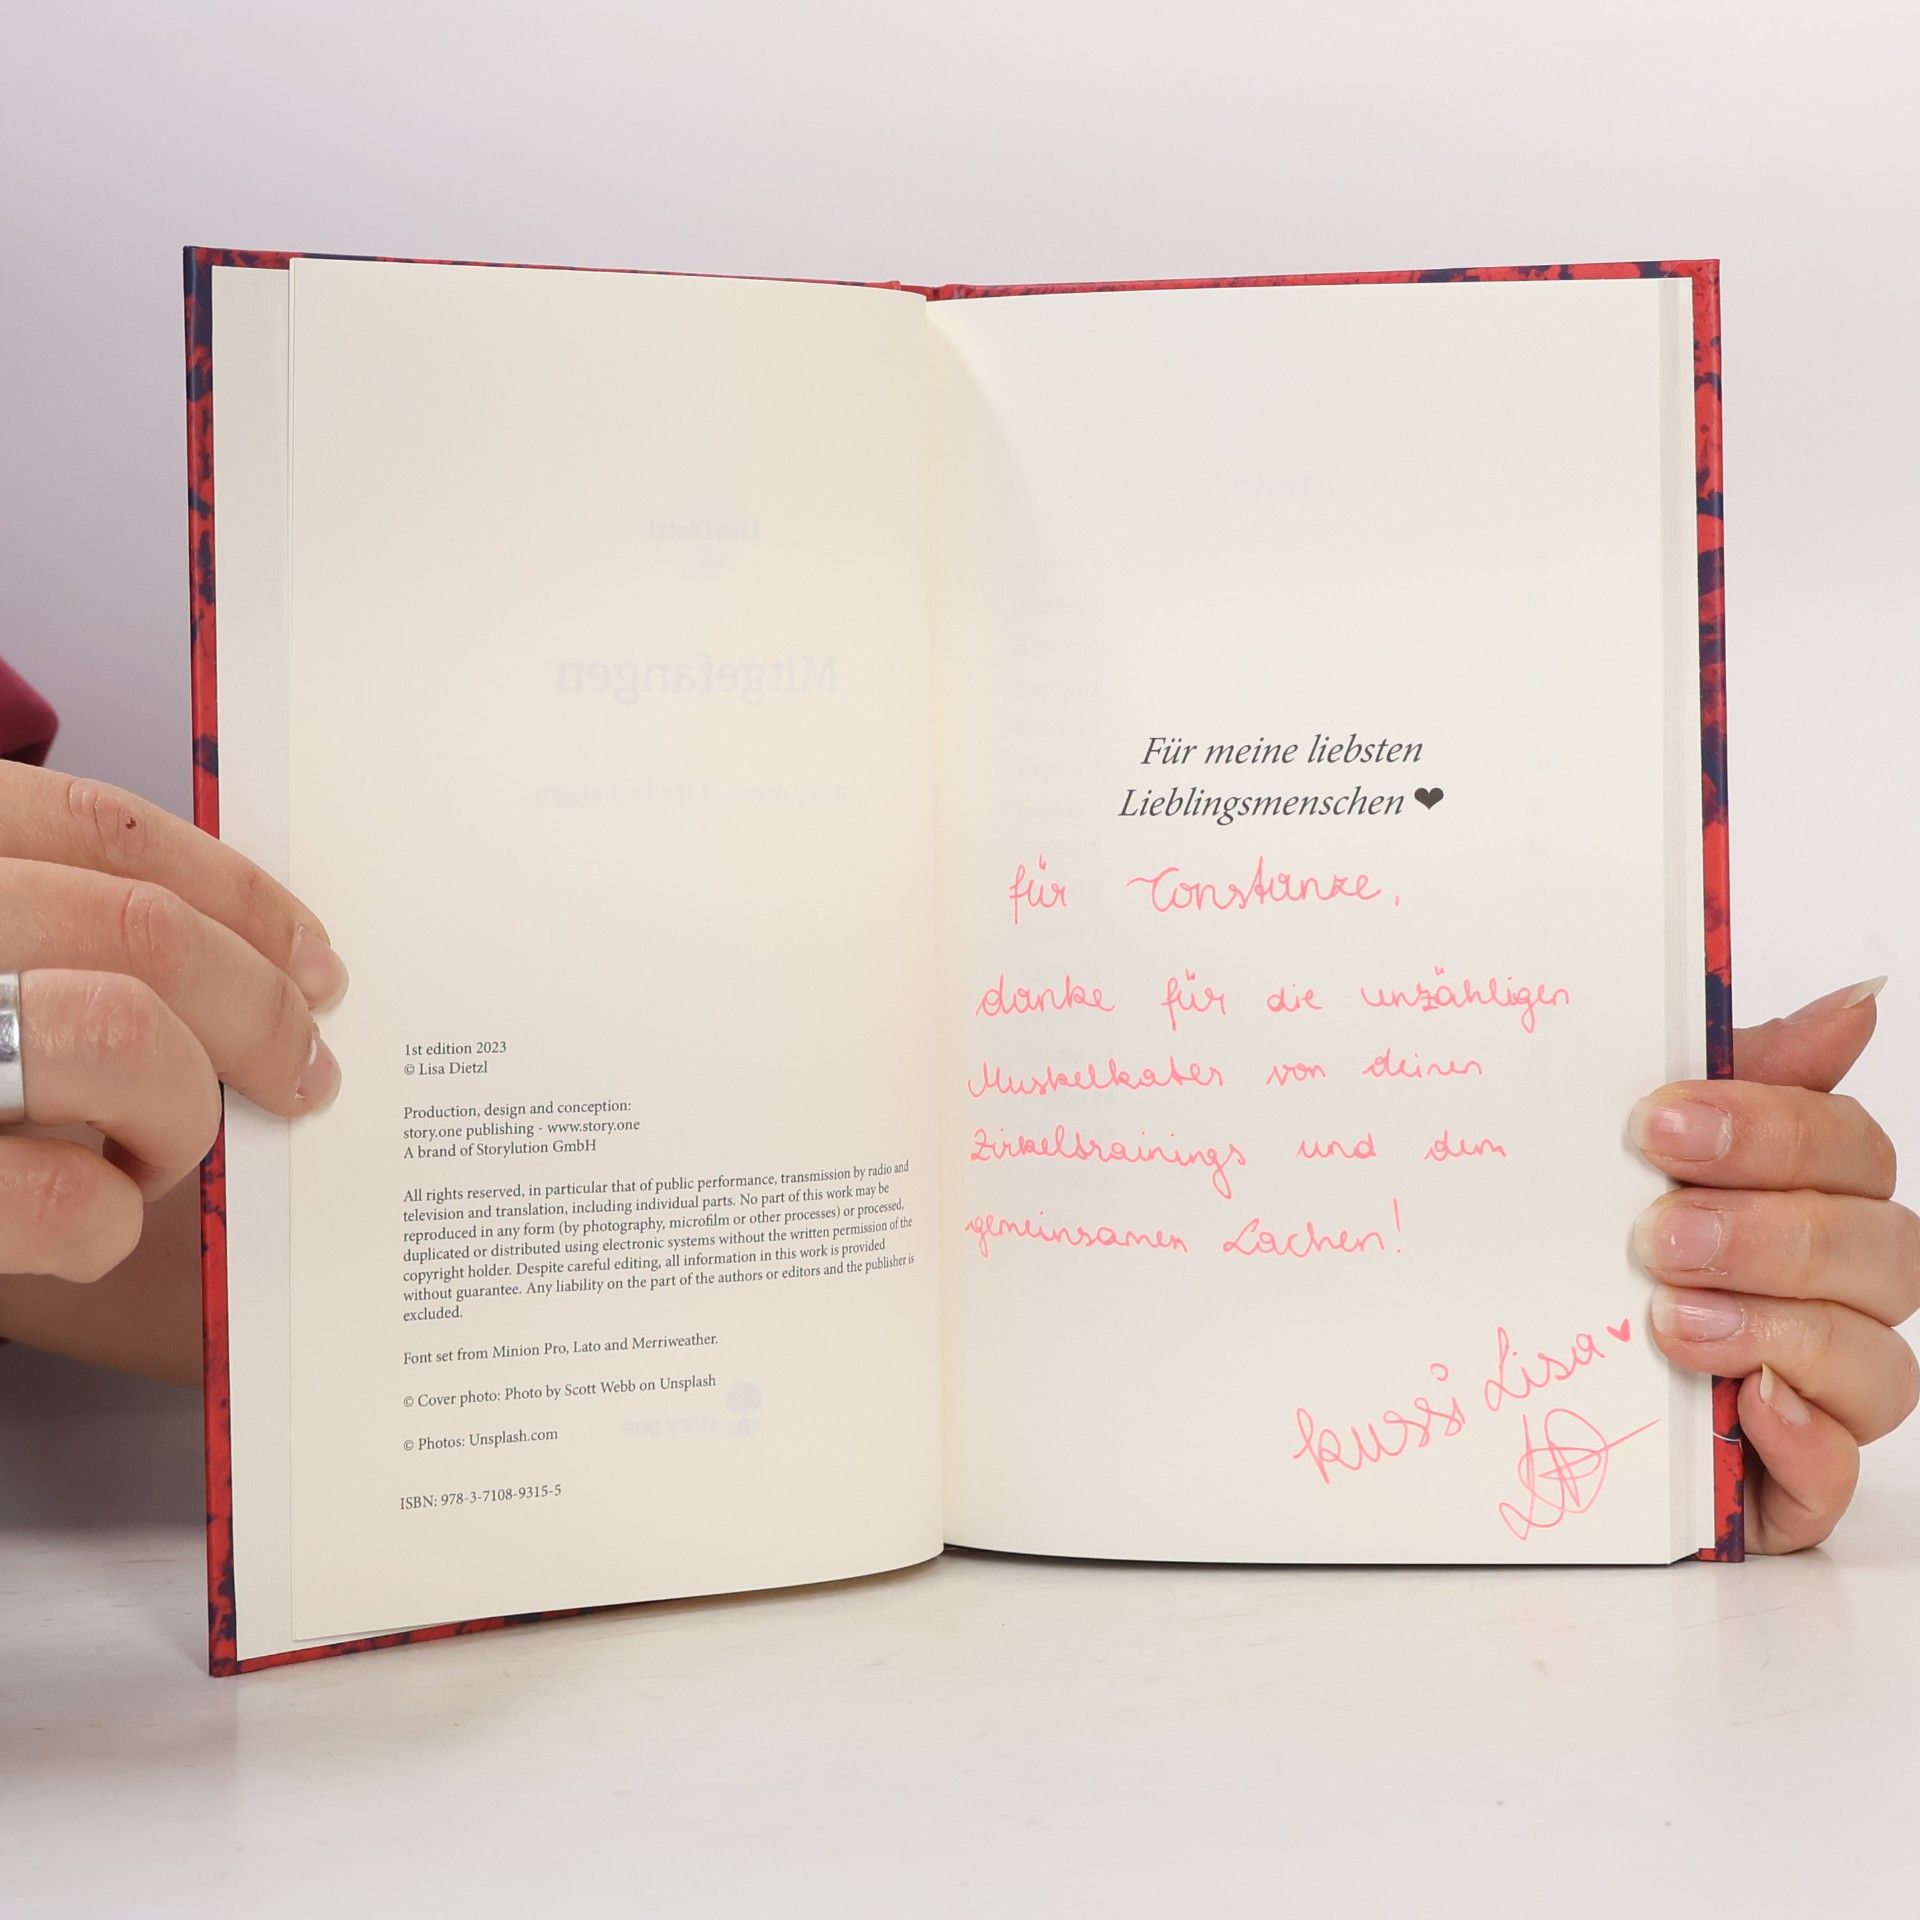 1st edition 2023
© Lisa Dietzl
Production, design and conception:
story.one publishing - www.story.one
A brand of Storylution GmbH
All rights reserved, in particular that of public performance, transmission by radio and
television and translation, including individual parts. No part of this work may be
reproduced in any form (by photography, microfilm or other processes) or processed,
duplicated or distributed using electronic systems without the written permission of the
copyright holder. Despite careful editing, all information in this work is provided
without guarantee. Any liability on the part of the authors or editors and the publisher is
excluded.
Font set from Minion Pro, Lato and Merriweather.
© Cover photo: Photo by Scott Webb on Unsplash
© Photos: Unsplash.com
ISBN: 978-3-7108-9315-5
Für meine liebsten
Lieblingsmenschen ❤
für Constanze,
danke für die unzähligen
Muskelkater von deinen
Zirkeltrainings und dem
gemeinsamen Lachen!
kussi Lisa ♥